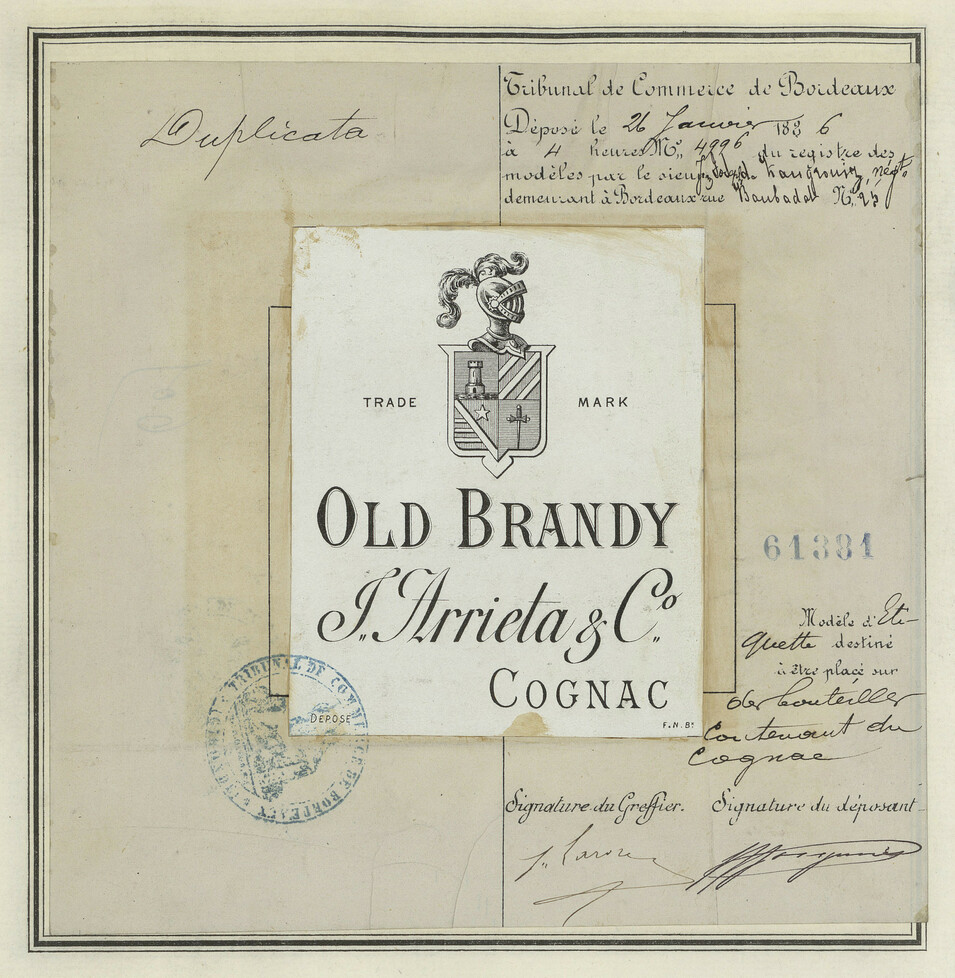 Duplicata
Tribunal de Commerce de Bordeaux
Déposé le 26 Janvier 1886
à 4 heures Nº, 4996 du registre des
modèles par le sieur négt.
demeurant à Bordeaux rue Nº, 25
TRADE MARK
OLD BRANDY
J. Arrieta & Cº
COGNAC
DÉPOSÉ
F.N.Bx
61381
Modèle d'Eti-
quette destiné
à être placé sur
des bouteilles
Contenant du
Cognac
TRIBUNAL DE COMMERCE DE BORDEAUX
Signature du Greffier. Signature du déposant